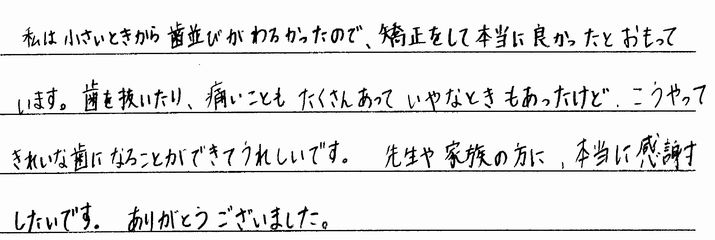 私は小さいときから歯並びがわるかったので、矯正をして本当に良かったとおもって
います。歯を抜いたり、痛いことも たくさんあって いやなときもあったけど、こうやって
きれいな歯になることができてうれしいです。 先生や家族の方に、本当に感謝す
したいです。 ありがとうございました。